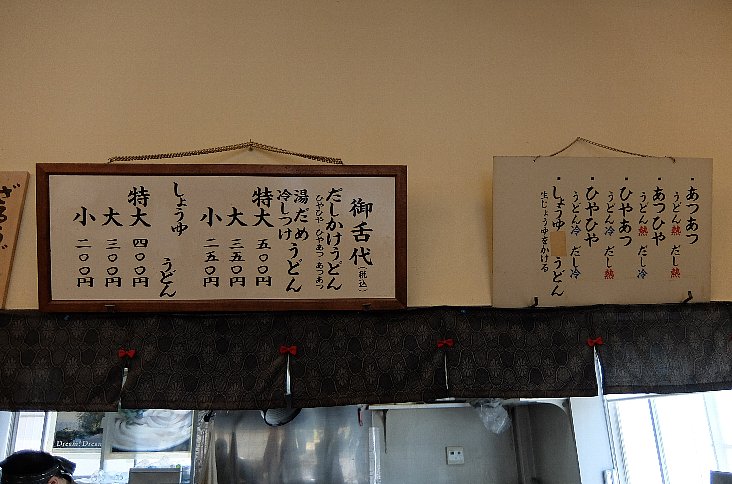 ざるうど
御舌代(税込)
だしかけうどん
ひやひや ひやあつ あつあつ
湯だめ
冷しつけ うどん
特大 五〇〇円
大 三五〇円
小 二五〇円
しょうゆ うどん
特大 四〇〇円
大 三〇〇円
小 二〇〇円
・あつあつ
うどん熱 だし熱
・あつひや
うどん熱 だし冷
・ひやあつ
うどん冷 だし熱
・ひやひや
うどん冷 だし冷
・しょうゆ うどん
生じょうゆをかける
Dream! Drean